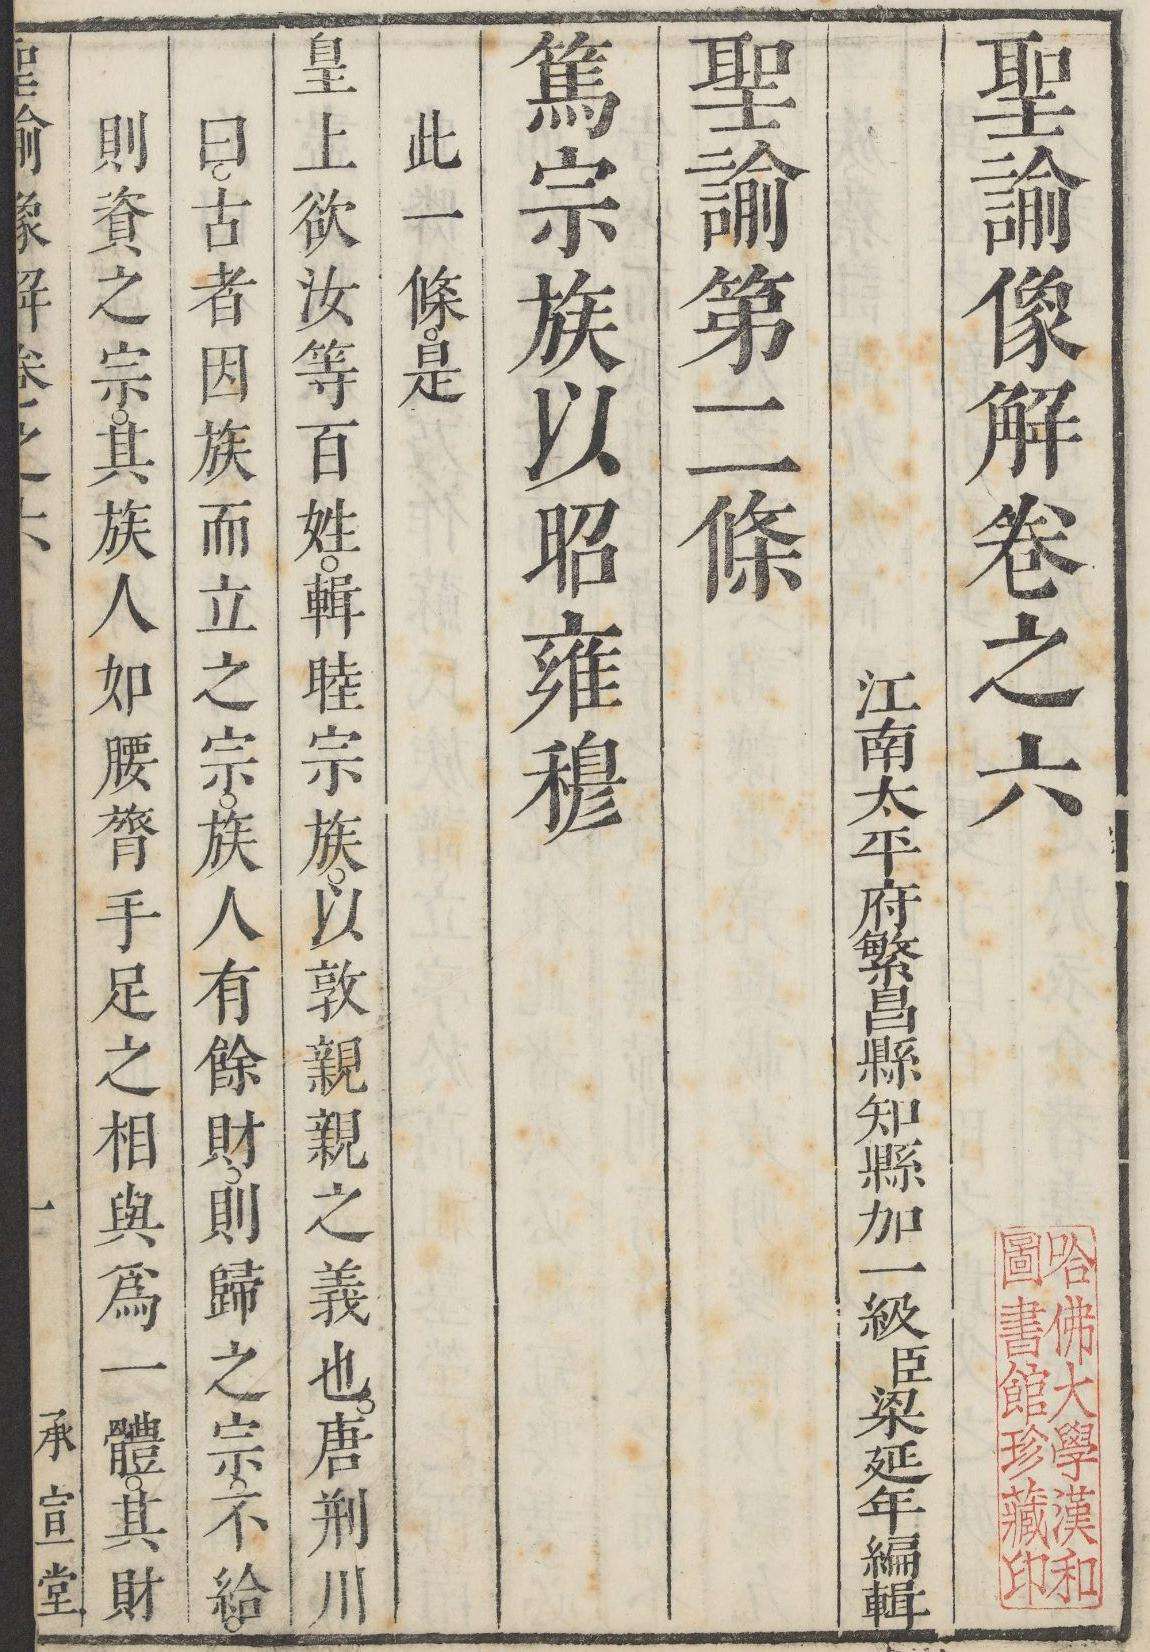 聖諭像解卷之六
江南太平府繁昌縣知縣加一級臣梁延年編輯
聖諭第二條
篤宗族以昭雍穆
此一條。是
皇上欲汝等百姓。輯睦宗族。以敦親親之義也。唐荆川
曰。古者因族而立之宗。族人有餘財。則歸之宗。不給。
則資之宗。其族人如腰膂手足之相與爲一體。其財
聖諭像解卷之六 一 承宣堂
哈佛大學漢和
圖書館珍藏印